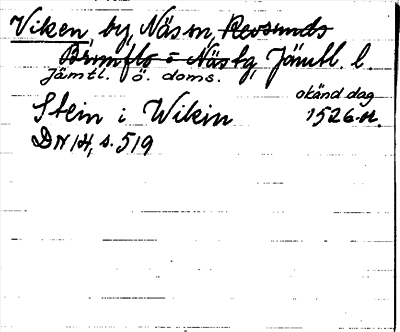 Viken, by, Näs sn, Revsunds
Brunflo o Näs tg, Jämtl. l.
Jämtl. ö. doms.
okänd dag
Stein i Wikin 1526
DN 14, s. 519